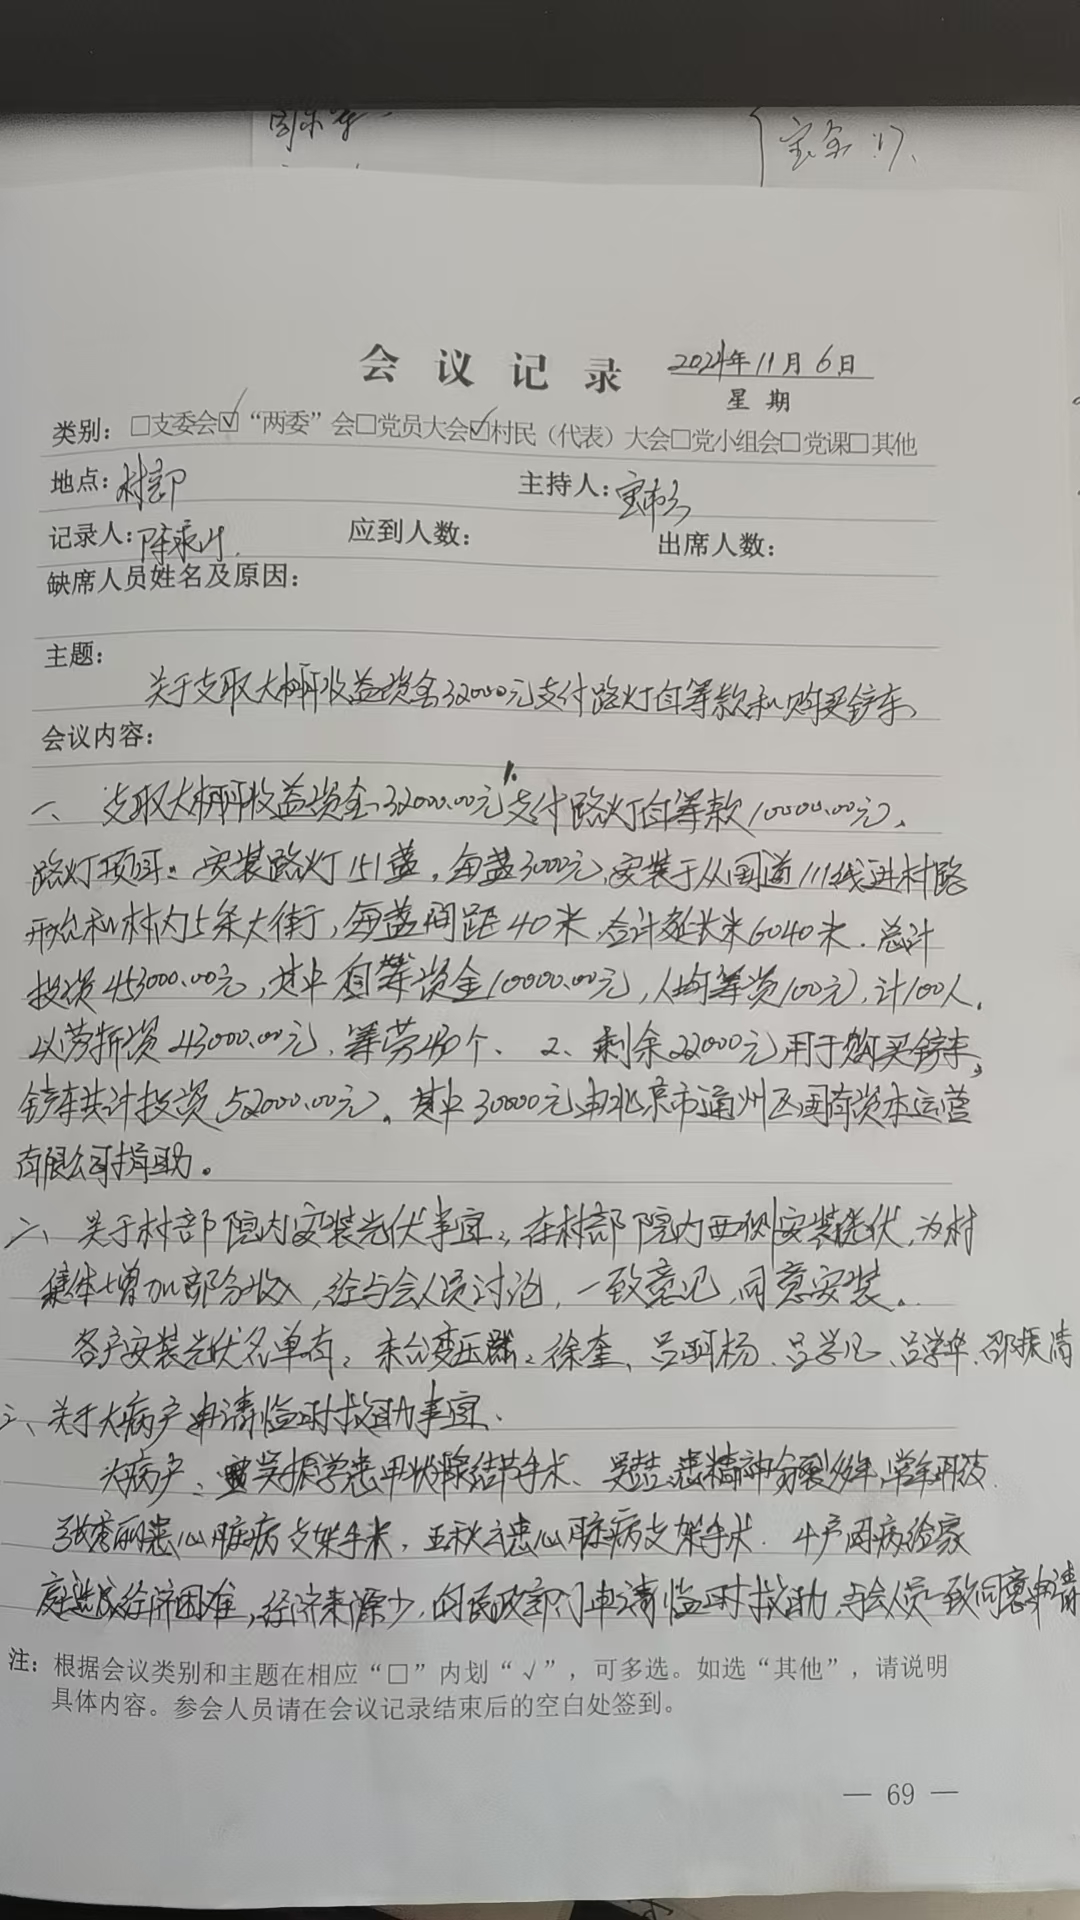 会议记录 2024年11月6日
星期
类别：□支委会☑“两委”会□党员大会☑村民（代表）大会□党小组会□党课□其他
地点：村部 主持人：
记录人： 应到人数： 出席人数：
缺席人员姓名及原因：
主题：
关于支取大棚收益资金32000元支付路灯自筹款和购买铲车、
会议内容：
一、支取大棚收益资金32000.00元1.支付路灯自筹款10000.00元、
路灯项目：安装路灯151盏，每盏3000元，安装于从国道111线进村路
开始和村内5条大街，每盏间距40米，合计延长米6040米．总计
投资453000.00元，其中自筹资金10000.00元，人均筹资100元，计100人，
以劳折资43000.00元，筹劳430个、2、剩余22000元用于购买铲车，
铲车共计投资52000.00元。其中30000元由北京市通州区国有资本运营
有限公司捐助。
二、关于村部院内安装光伏事宜：在村部院内西侧安装光伏，为村
集体增加部分收入，经与会人员讨论，一致意见，同意安装。
各户安装光伏名单有： 徐奎、吕学华、邵振清
三、关于大病户申请临时救助事宜、
大病户：吴振学患甲状腺结节手术、患精神分裂多年，常年用药．
患心脏病支架手术，王秋云患心脏病支架手术．4户因病给家
庭造成经济困难，经济来源少，向民政部门申请临时救助，与会人员一致同意申请
注：根据会议类别和主题在相应“□”内划“√”，可多选。如选“其他”，请说明
具体内容。参会人员请在会议记录结束后的空白处签到。
— 69 —